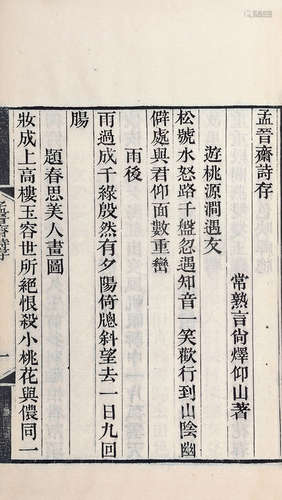 孟晉齋詩存
常熟言尙燡仰山著
遊桃源澗遇友
松號水怒路千盤忽遇知音一笑歡行到山陰幽
僻處與君仰面數重巒
雨後
雨過成千綠殷然有夕陽倚牕斜望去一日九回
腸
題春思美人畫圖
妝成上高樓玉容世所絕恨殺小桃花與儂同一
孟晉齋詩存
一